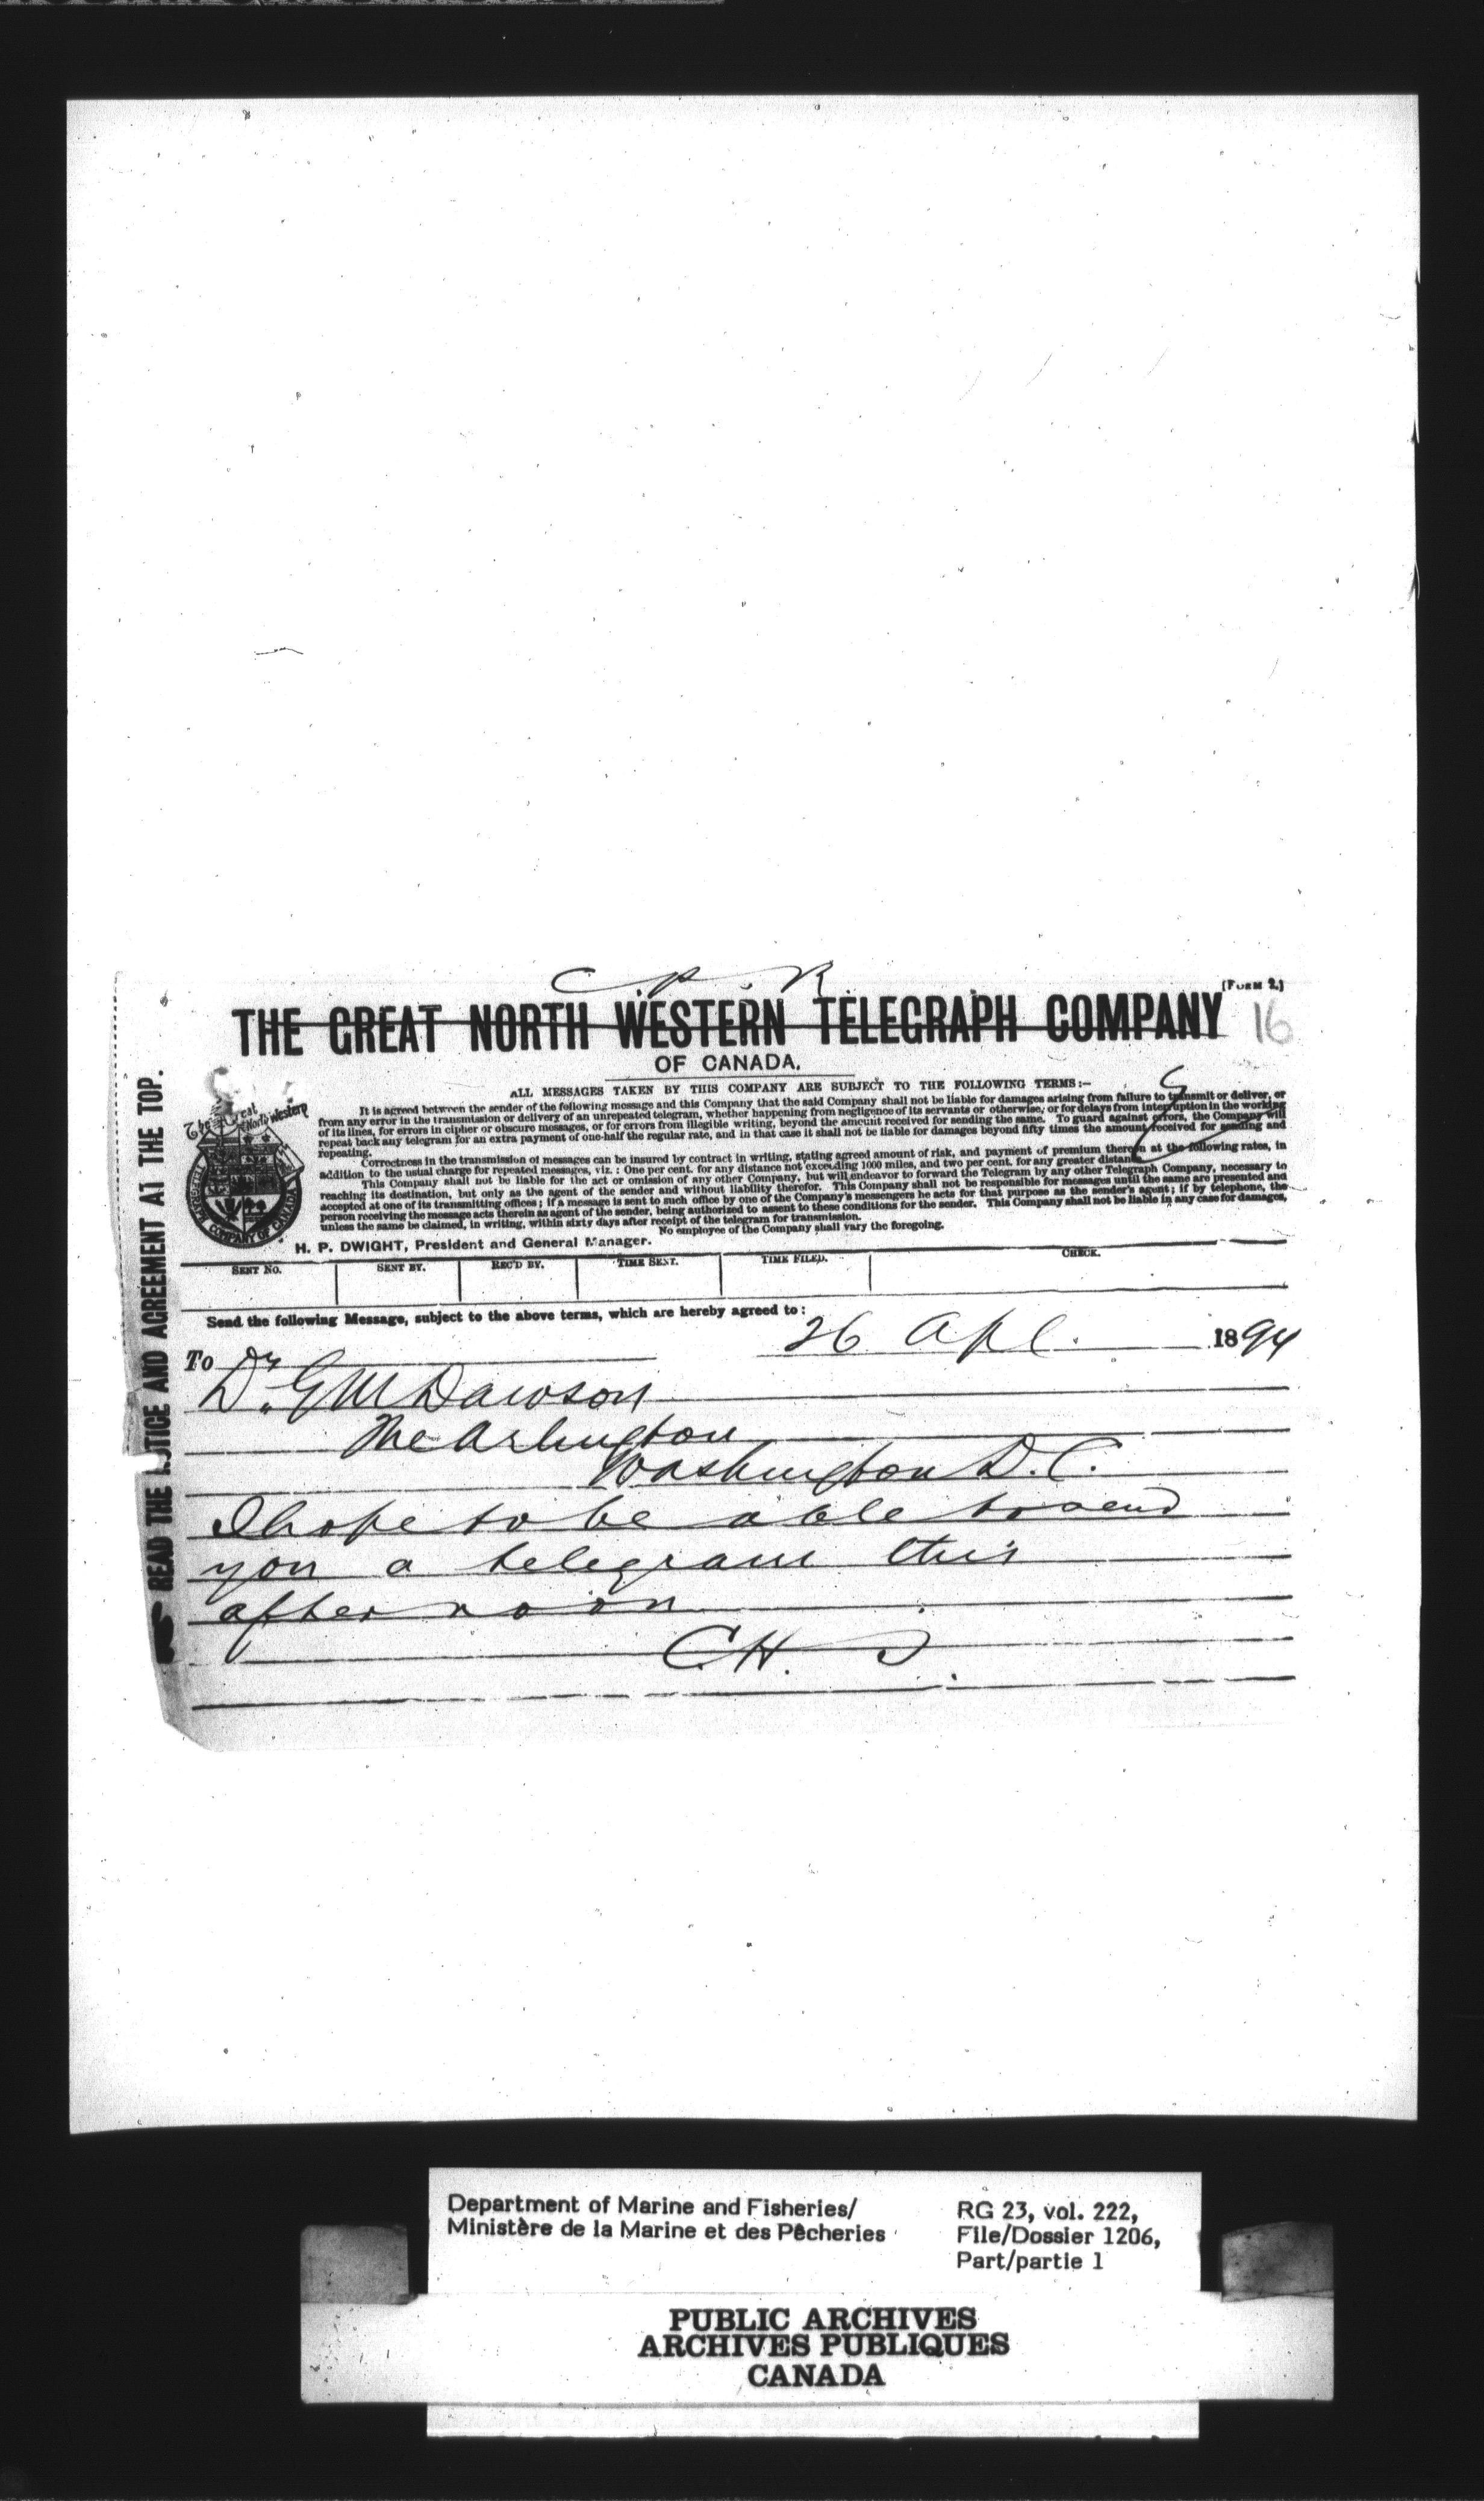 C. P. R
[FORM 2.]
THE GREAT NORTH WESTERN TELEGRAPH COMPANY
16
OF CANADA.
ALL MESSAGES TAKEN BY THIS COMPANY ARE SUBJECT TO THE FOLLOWING TERMS:—
It is agreed between the sender of the following message and this Company that the said Company shall not be liable for damages arising from failure to transmit or deliver, or
from any error in the transmission or delivery of an unrepeated telegram, whether happening from negligence of its servants or otherwise, or for delays from interruption in the working
of its lines, for errors in cipher or obscure messages, or for errors from illegible writing, beyond the amount received for sending the same. To guard against errors, the Company will
repeat back any telegram for an extra payment of one-half the regular rate, and in that case it shall not be liable for damages beyond fifty times the amount received for sending and
repeating.
Correctness in the transmission of messages can be insured by contract in writing, stating agreed amount of risk, and payment of premium thereon at the following rates, in
addition to the usual charge for repeated messages, viz.: One per cent. for any distance not exceeding 1000 miles, and two per cent. for any greater distance.
This Company shall not be liable for the act or omission of any other Company, but will endeavor to forward the Telegram by any other Telegraph Company, necessary to
reaching its destination, but only as the agent of the sender and without liability therefor. This Company shall not be responsible for messages until the same are presented and
accepted at one of its transmitting offices; if a message is sent to such office by one of the Company's messengers he acts for that purpose as the sender's agent; if by telephone, the
person receiving the message acts therein as agent of the sender, being authorized to assent to these conditions for the sender. This Company shall not be liable in any case for damages,
unless the same be claimed, in writing, within sixty days after receipt of the telegram for transmission.
No employee of the Company shall vary the foregoing.
The Great North Western
TELEGRAPH COMPANY OF CANADA
H. P. DWIGHT, President and General Manager.
SENT NO. SENT BY. REC'D BY. TIME SENT. TIME FILED. CHECK.
Send the following Message, subject to the above terms, which are hereby agreed to:
26 Apl. 1894
To Dr. G M Dawson
The Arlington
Washington D.C.
I hope to be able to send
you a telegram this
afternoon
C.H.
READ THE NOTICE AND AGREEMENT AT THE TOP.
Department of Marine and Fisheries/
Ministère de la Marine et des Pêcheries
RG 23, vol. 222,
File/Dossier 1206,
Part/partie 1
PUBLIC ARCHIVES
ARCHIVES PUBLIQUES
CANADA